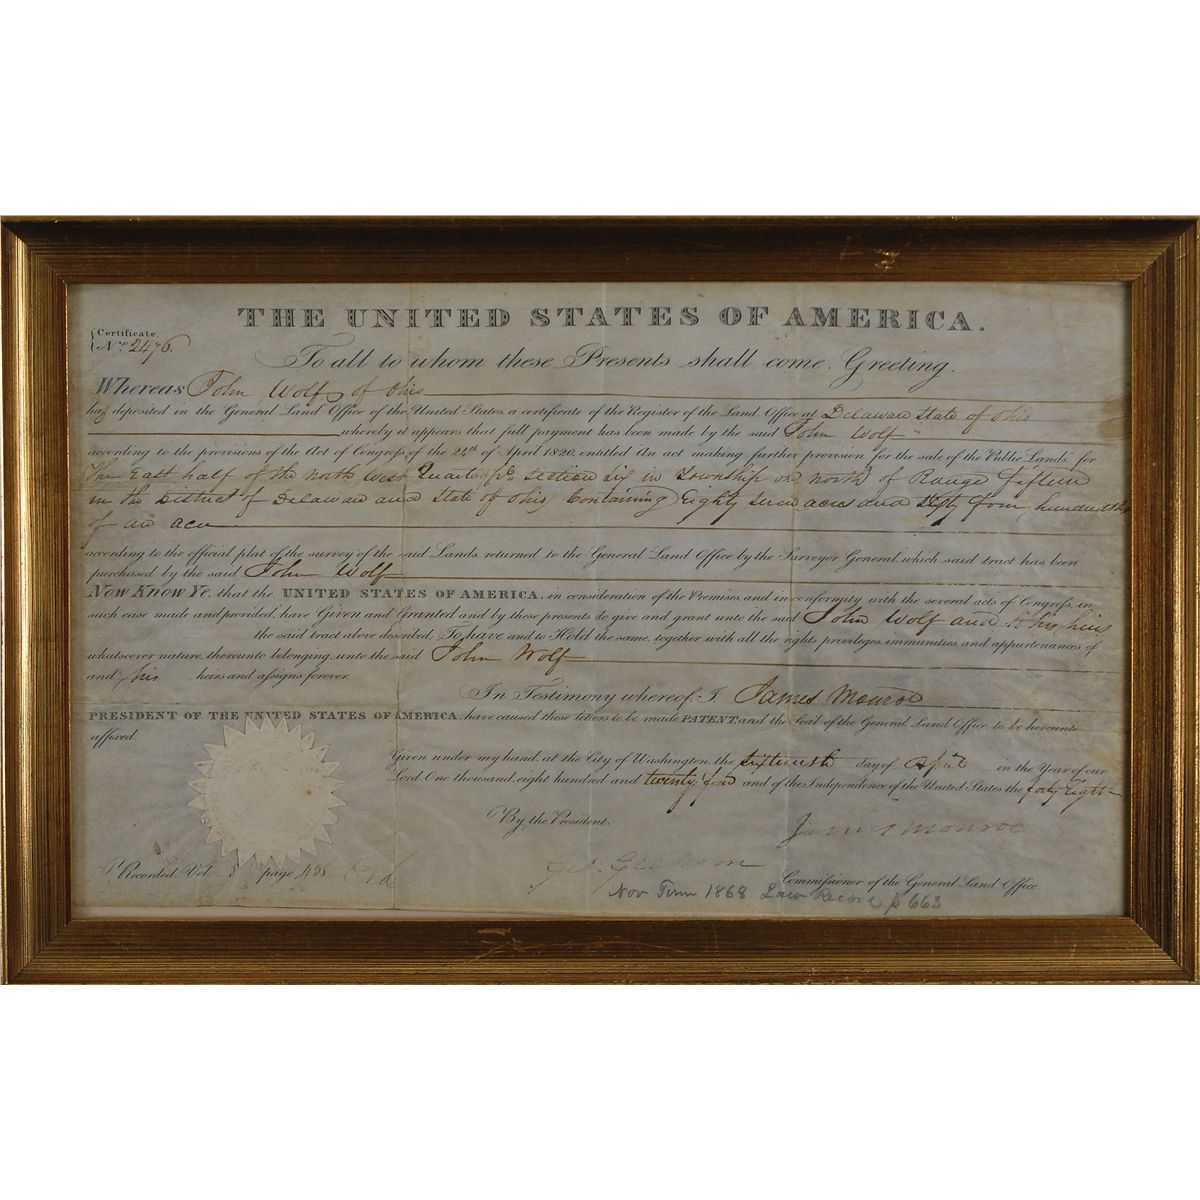 THE UNITED STATES OF AMERICA.
Certificate
No. 2476.
To all to whom these Presents shall come, Greeting.
Whereas John Wolf of Ohio
has deposited in the General Land Office of the United States, a certificate of the Register of the Land Office at Delaware State of Ohio
whereby it appears that full payment has been made by the said John Wolf
according to the provisions of the Act of Congress of the 24th of April 1820, entitled An act making further provision for the sale of the Public Lands, for
The East half of the north west Quarter of section six in Township one north of Range fifteen
in the District of Delaware and State of Ohio Containing Eighty seven acres and fifty four hundredths
of an acre
according to the official plat of the survey of the said Lands, returned to the General Land Office by the Surveyor General, which said tract has been
purchased by the said John Wolf
Now Know Ye, that the UNITED STATES OF AMERICA, in consideration of the Premises, and in conformity with the several acts of Congress, in
such case made and provided, have Given and Granted and by these presents do give and grant unto the said John Wolf and to his heirs
the said tract above described, To have and to Hold the same, together with all the rights, privileges, immunities, and appurtenances of
whatsoever nature, thereunto belonging, unto the said John Wolf
and his heirs and assigns forever.
In Testimony whereof, I, James Monroe
PRESIDENT OF THE UNITED STATES OF AMERICA, have caused these letters to be made PATENT and the Seal of the General Land Office to be hereunto
affixed.
Given under my hand, at the City of Washington, the sixteenth day of April in the Year of our
Lord One thousand, eight hundred and twenty four and of the Independence of the United States the forty Eighth
By the President. James Monroe
Recorded, Vol 3 page 438
Graham
Commissioner of the General Land Office
Nov Term 1868 Law Record p 663